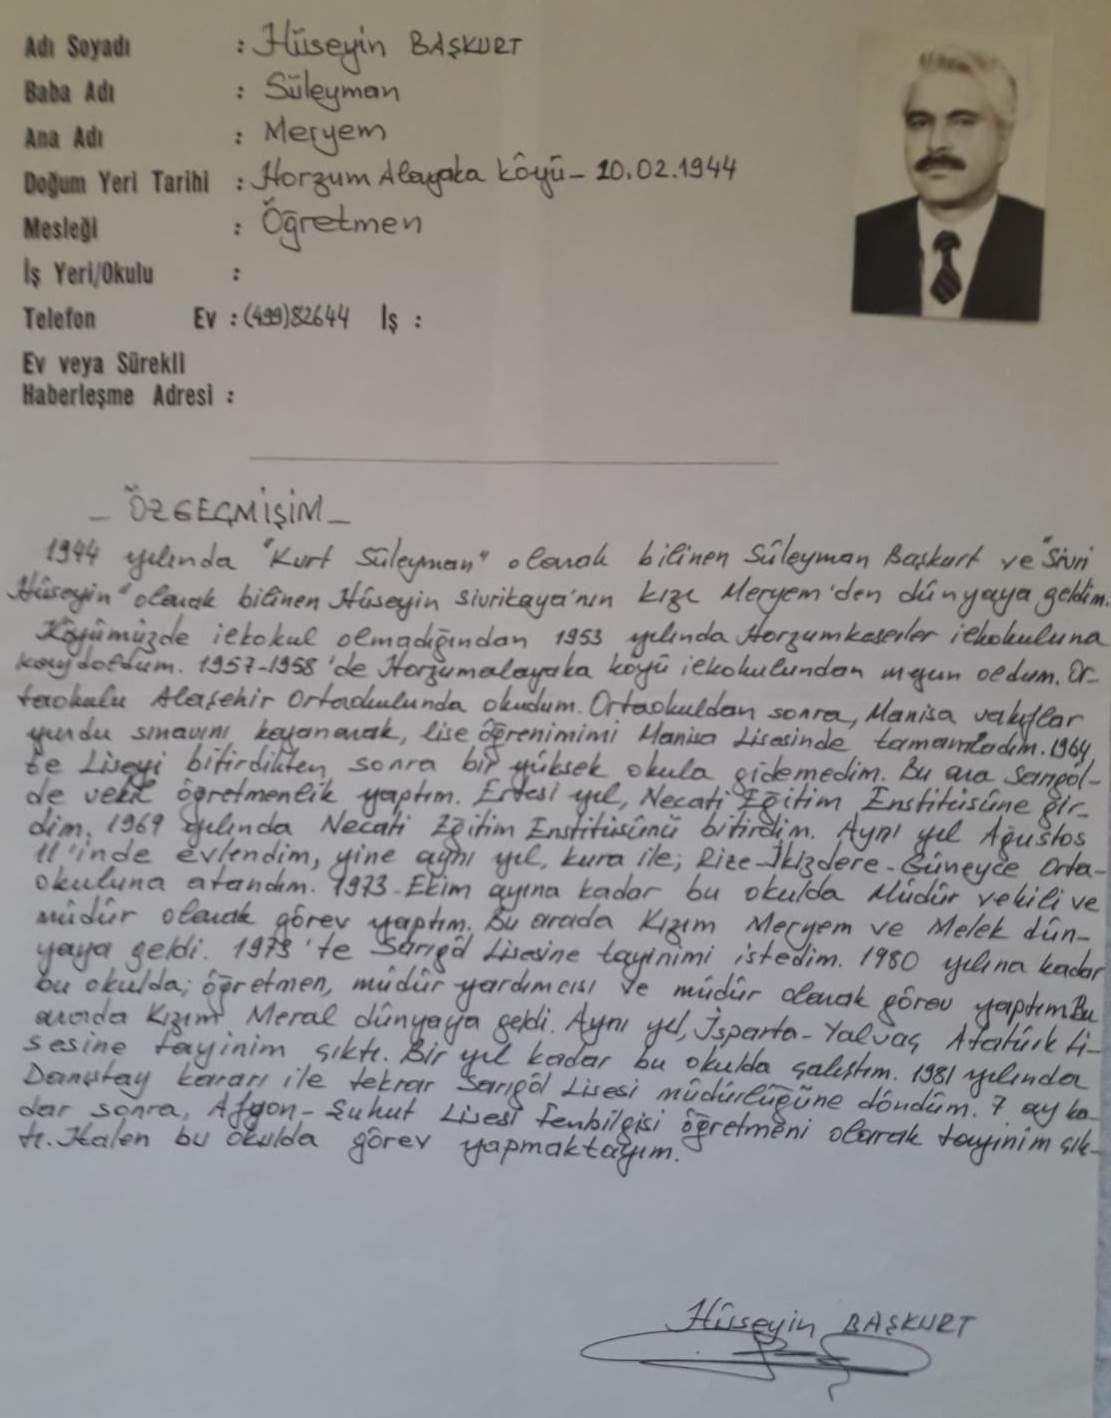 Adı Soyadı : Hüseyin BAŞKURT
Baba Adı : Süleyman
Ana Adı : Meryem
Doğum Yeri Tarihi : Horzum Alayaka köyü - 10.02.1944
Mesleği : Öğretmen
İş Yeri/Okulu :
Telefon Ev : (499)82644 İş :
Ev veya Sürekli
Haberleşme Adresi :
- ÖZGEÇMİŞİM -
1944 yılında "Kurt Süleyman" olarak bilinen Süleyman Başkurt ve "Sivri
Hüseyin" olarak bilinen Hüseyin Sivrikaya'nın kızı Meryem'den dünyaya geldim.
Köyümüzde ilkokul olmadığından 1953 yılında Horzumkeserler ilkokuluna
kaydoldum. 1957-1958'de Horzumalayaka köyü ilkokulundan mezun oldum. Or-
taokulu Alaşehir Ortaokulunda okudum. Ortaokuldan sonra, Manisa vakıflar
yurdu sınavını kazanarak, lise öğrenimimi Manisa Lisesinde tamamladım. 1964
te Liseyi bitirdikten sonra bir yüksek okula gidemedim. Bu ara Sarıgöl-
de vekil öğretmenlik yaptım. Ertesi yıl, Necati Eğitim Enstitüsüne gir-
dim. 1969 yılında Necati Eğitim Enstitüsünü bitirdim. Aynı yıl Ağustos
11'inde evlendim, yine aynı yıl, kura ile; Rize-İkizdere-Güneyce Orta-
okuluna atandım. 1973-Ekim ayına kadar bu okulda Müdür vekili ve
müdür olarak görev yaptım. Bu arada Kızım Meryem ve Melek dün-
yaya geldi. 1973'te Sarıgöl Lisesine tayinimi istedim. 1980 yılına kadar
bu okulda; öğretmen, müdür yardımcısı ve müdür olarak görev yaptım Bu
arada Kızım Meral dünyaya geldi. Aynı yıl, Isparta-Yalvaç Atatürk Li-
sesine tayinim çıktı. Bir yıl kadar bu okulda çalıştım. 1981 yılında
Danıştay kararı ile tekrar Sarıgöl Lisesi müdürlüğüne döndüm. 7 ay ka-
dar sonra, Afyon-Şuhut Lisesi fenbilgisi öğretmeni olarak tayinim çık-
tı. Halen bu okulda görev yapmaktayım.
Hüseyin BAŞKURT